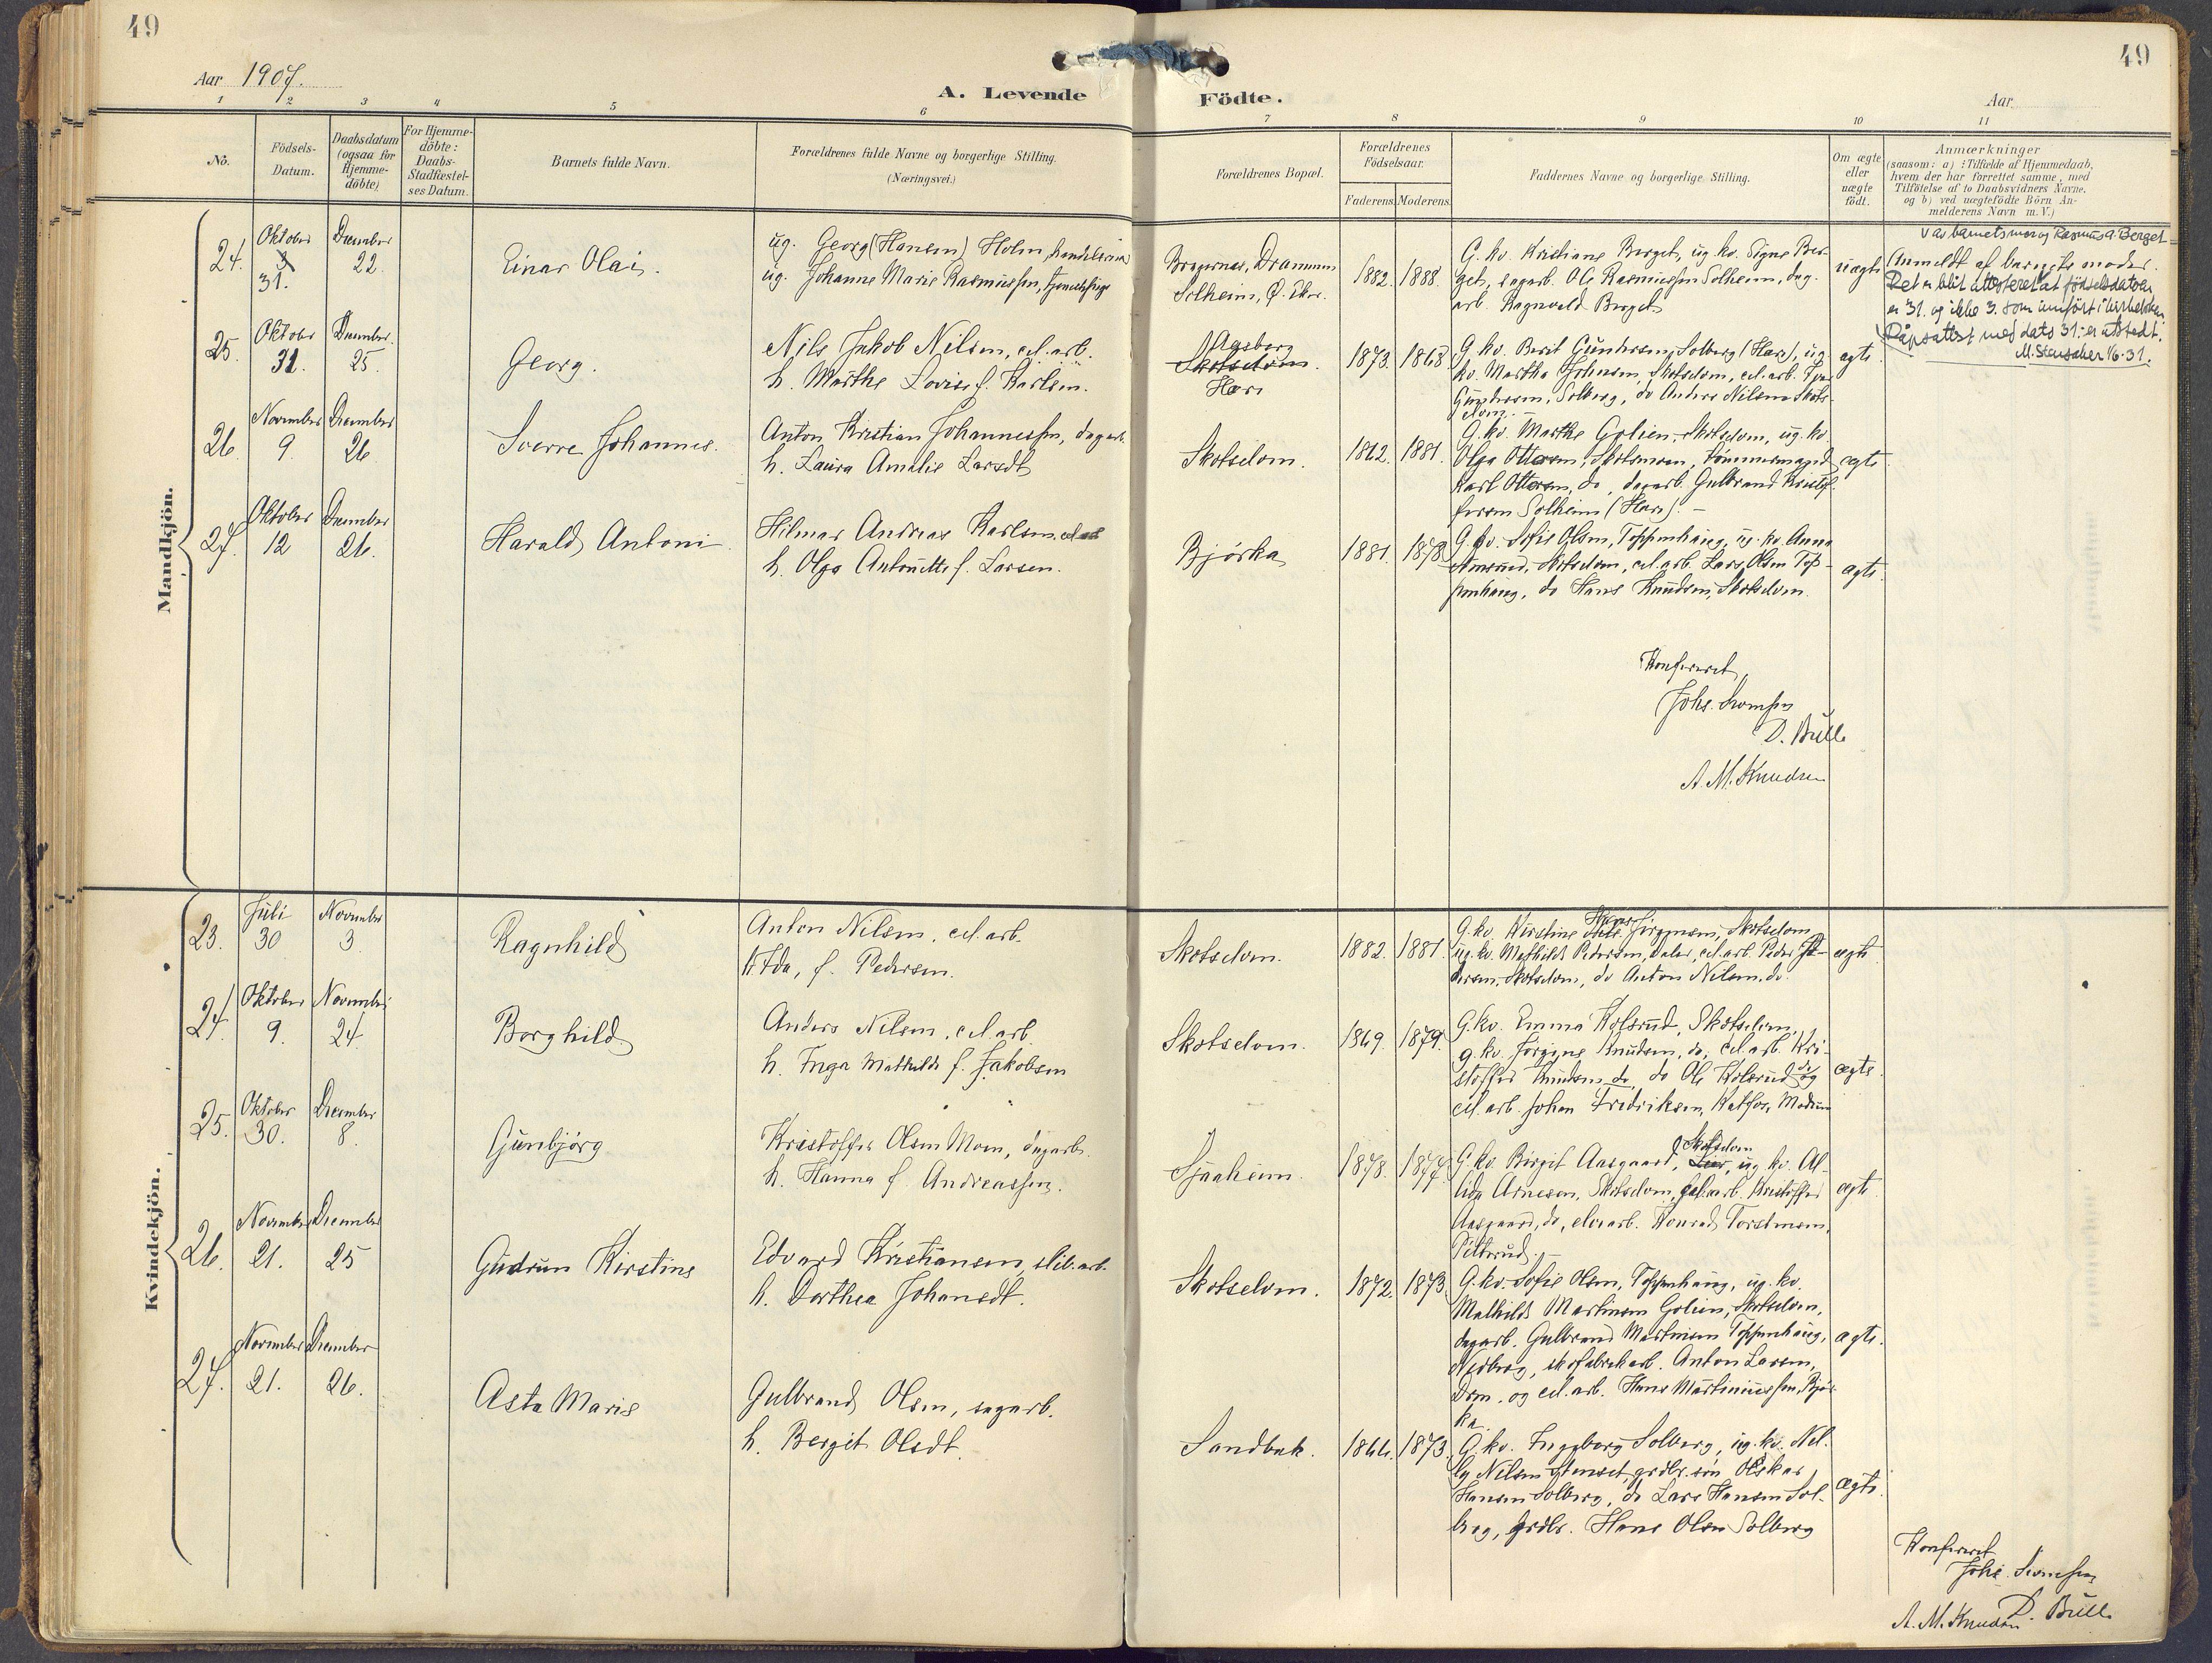 49
49
Aar 1907.
A. Levende Födte.
Aar
1 2 3 4 5 6 7 8 9 10 11
No.
Födsels-
Datum.
Daabsdatum
(ogsaa for
Hjemme-
döbte)
For Hjemme-
döbte:
Daabs-
Stadfæstel-
ses Datum.
Barnets fulde Navn.
Forældrenes fulde Navne og borgerlige Stilling.
(Næringsvei.)
Forældrenes Bopæl.
Forældrenes
Födselsaar.
Faderens. Moderens.
Faddernes Navne og borgerlige Stilling.
Om ægte
eller
uægte
födt.
Anmærkninger
(saasom: a) i Tilfælde af Hjemmedaab,
hvem der har forrettet samme, med
Tilföielse af to Daabsvidners Navne.
og b) ved uægtefödte Börn An-
melderens Navn m.V.)
Mandkjön.
24.
Oktober
3
31.
December
22.
Einar Olai.
ug. Georg (Hansen) Holm,
ug. Johanne Marie Rasmussen, tjenestepige
Bragernes, Drammen
Solheim, Ø. Eker.
1882. 1888.
G. kv. Kristiane Berget, ug. kv. Signe Ber-
get, sagarb. Ole Rasmussen Solheim, dag-
arb. Ragnvald Berget
uægte
av barnets mor og Rasmus A. Berget
Anmeldt af barnets moder.
Det er blit attesteret at födselsdatoen
er 31. og ikke 3. som innfört i kirkeboken
Dåpsattest med dato 31. er utstedt.
M. Stensaker 16-31.
25.
Oktober
31.
December
25.
Georg.
Nils Jakob Nilsen, cel. arb.
h. Marthe Lovise f. Karlsen.
Aasberg
Skotselven.
Hære
1873. 1868
G. kv. Berit Gundersen, Solberg (Hære), ug.
kv. Martha Johnsen, Skotselven, cel. arb.
Gundersen, Solberg, do Anders Nilsen Skots-
elven.
ægte.
26.
November
9
December
26
Sverre Johannes.
Anton Kristian Johannessen, dagarb.
h. Laura Amalie Larsdt
Skotselven.
1862. 1881.
G. kv. Marthe Golien, Skotselven, ug. kv.
Olga Ottersen, Skotsmoen, tömmermand
Karl Ottersen, do, dagarb. Gulbrand Kristof-
fersen Solheim (Hære).
ægte
27.
Oktober
12
December
26.
Harald Antoni
Hilmar Andreas Karlsen, cel. arb
h. Olga Antonette f. Larsen.
Bjørka
1881. 1878
G. kv. Sofie Olsen, Toppenhaug, ug. kv. Anna
Amrud, Skotselven, cel. arb. Lars Olsen Top-
penhaug, do Hans Knudsen, Skotselven.
ægte.
Konfereret
D. Bull
A. M. Knudsen
Kvindekjön.
23.
Juli
30
November
3.
Ragnhild
Anton Nilsen, cel. arb.
h. Ida, f. Pedersen.
Skotselven.
1882. 1881.
G. kv. Kirstine Hans Jörgensen, Skotselven
ug. kv. Mathilde Pedersen, Daler, cel. arb. Peder Pe-
dersen, Skotselven, do Anton Nilsen, do.
ægte
24
Oktober
9.
November
24
Borghild
Anders Nilsen, cel. arb.
h. Inga Mathilde f. Jakobsen
Skotselven.
1869. 1879.
G. kv. Emma Kolsrud, Skotselven,
g. kv. Jörgine Knudsen, do, cel. arb. Kri-
stoffer Knudsen do, do Ole Kolsrud do og
cel. arb. Johan Fredriksen, Katfos, Modum
ægte.
25.
Oktober
30.
December
8.
Gunbjörg
Kristoffer Olsen Moen, dagarb.
h. Hanna f. Andreassen.
Sjaaheim.
1878. 1877.
G. kv. Birgit Aasgaard, Skotselven, ug. kv. Al-
vida Arnesen, Skotselven, cel. arb. Kristoffer
Aasgaard, do, elvearb. Konrad Torstensen,
Pilterud.
ægte.
26.
November
21.
December
25
Gudrun Kirstine
Edvard Kristiansen, slib. arb.
h. Dorthea Johansdt.
Skotselven.
1872. 1873.
G. kv. Sofie Olsen, Toppenhaug, ug. kv.
Mathilde Martinsen Golien, Skotselven,
dagarb. Gulbrand Martinsen Toppenhaug,
Nedberg, skofabrikarb. Anton Larsen,
Drm. og cel. arb. Hans Martiniussen, Bjør-
ka.
ægte.
27.
November
21.
December
26.
Asta Marie
Gulbrand Olsen, sagarb.
h. Bergit Olsdt.
Sandbak.
1866. 1873.
G. kv. Ingeborg Solberg, ug. kv. Nel-
ly Nilsen Stenset, grdbr. sön Oskar
Hansen Solberg, do Lars Hansen Sol-
berg, grdbr. Hans Olsen Solberg
ægte.
Konfereret
D. Bull.
A. M. Knudsen